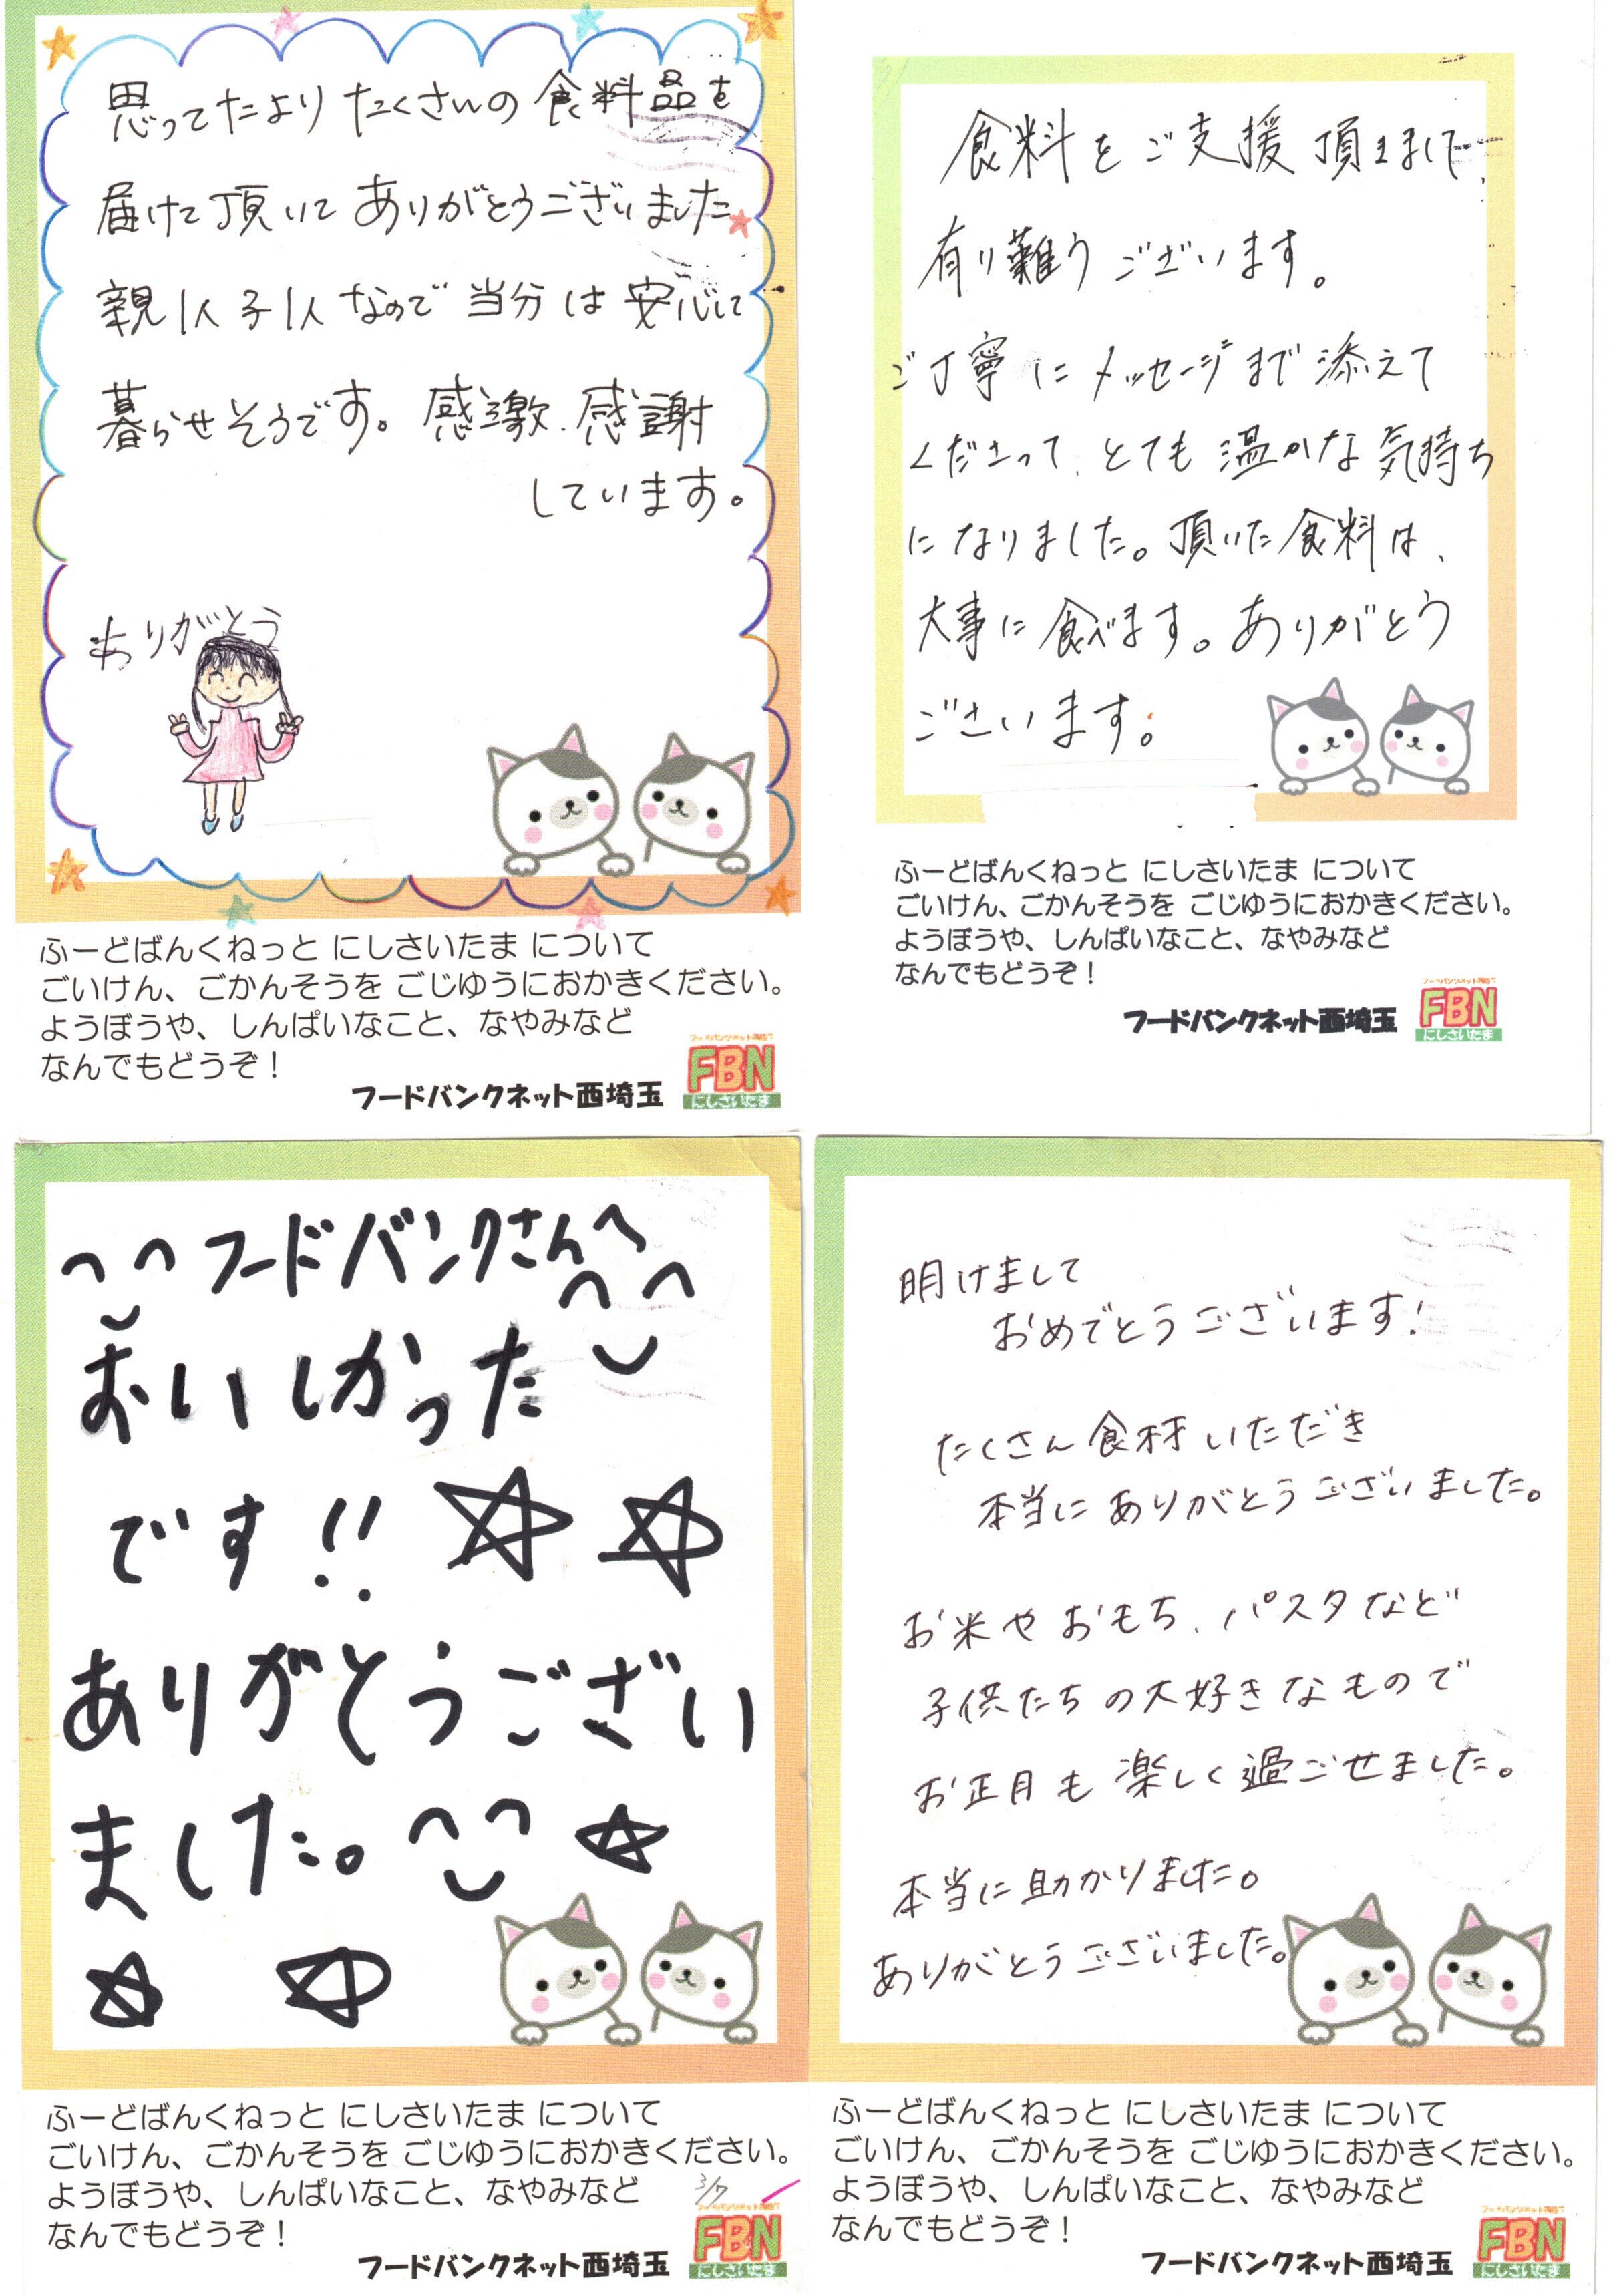 思ってたより たくさんの 食料品を
届けて頂いて ありがとうございました
親1人子1人なので 当分は 安心して
暮らせそうです。感激、感謝
しています。
ありがとう
ふーどばんくねっと にしさいたま について
ごいけん、ごかんそうを ごじゆうにおかきください。
ようぼうや、しんぱいなこと、なやみなど
なんでもどうぞ！
フードバンクネット西埼玉
FBN
にしさいたま
食料をご支援頂きまして、
有り難うございます。
ご丁寧にメッセージまで添えて
くださって、とても温かな気持ち
になりました。頂いた食料は、
大事に食べます。ありがとう
ございます。
ふーどばんくねっと にしさいたま について
ごいけん、ごかんそうを ごじゆうにおかきください。
ようぼうや、しんぱいなこと、なやみなど
なんでもどうぞ！
フードバンクネット西埼玉
FBN
にしさいたま
フードバンクさんへ
おいしかった
です!!
ありがとうござい
ました。
ふーどばんくねっと にしさいたま について
ごいけん、ごかんそうを ごじゆうにおかきください。
ようぼうや、しんぱいなこと、なやみなど
なんでもどうぞ！
フードバンクネット西埼玉
FBN
にしさいたま
明けまして
おめでとうございます!
たくさん食材いただき
本当にありがとうございました。
お米やおもち、パスタなど
子供たちの大好きなもので
お正月も楽しく過ごせました。
本当に助かりました。
ありがとうございました。
ふーどばんくねっと にしさいたま について
ごいけん、ごかんそうを ごじゆうにおかきください。
ようぼうや、しんぱいなこと、なやみなど
なんでもどうぞ！
フードバンクネット西埼玉
FBN
にしさいたま